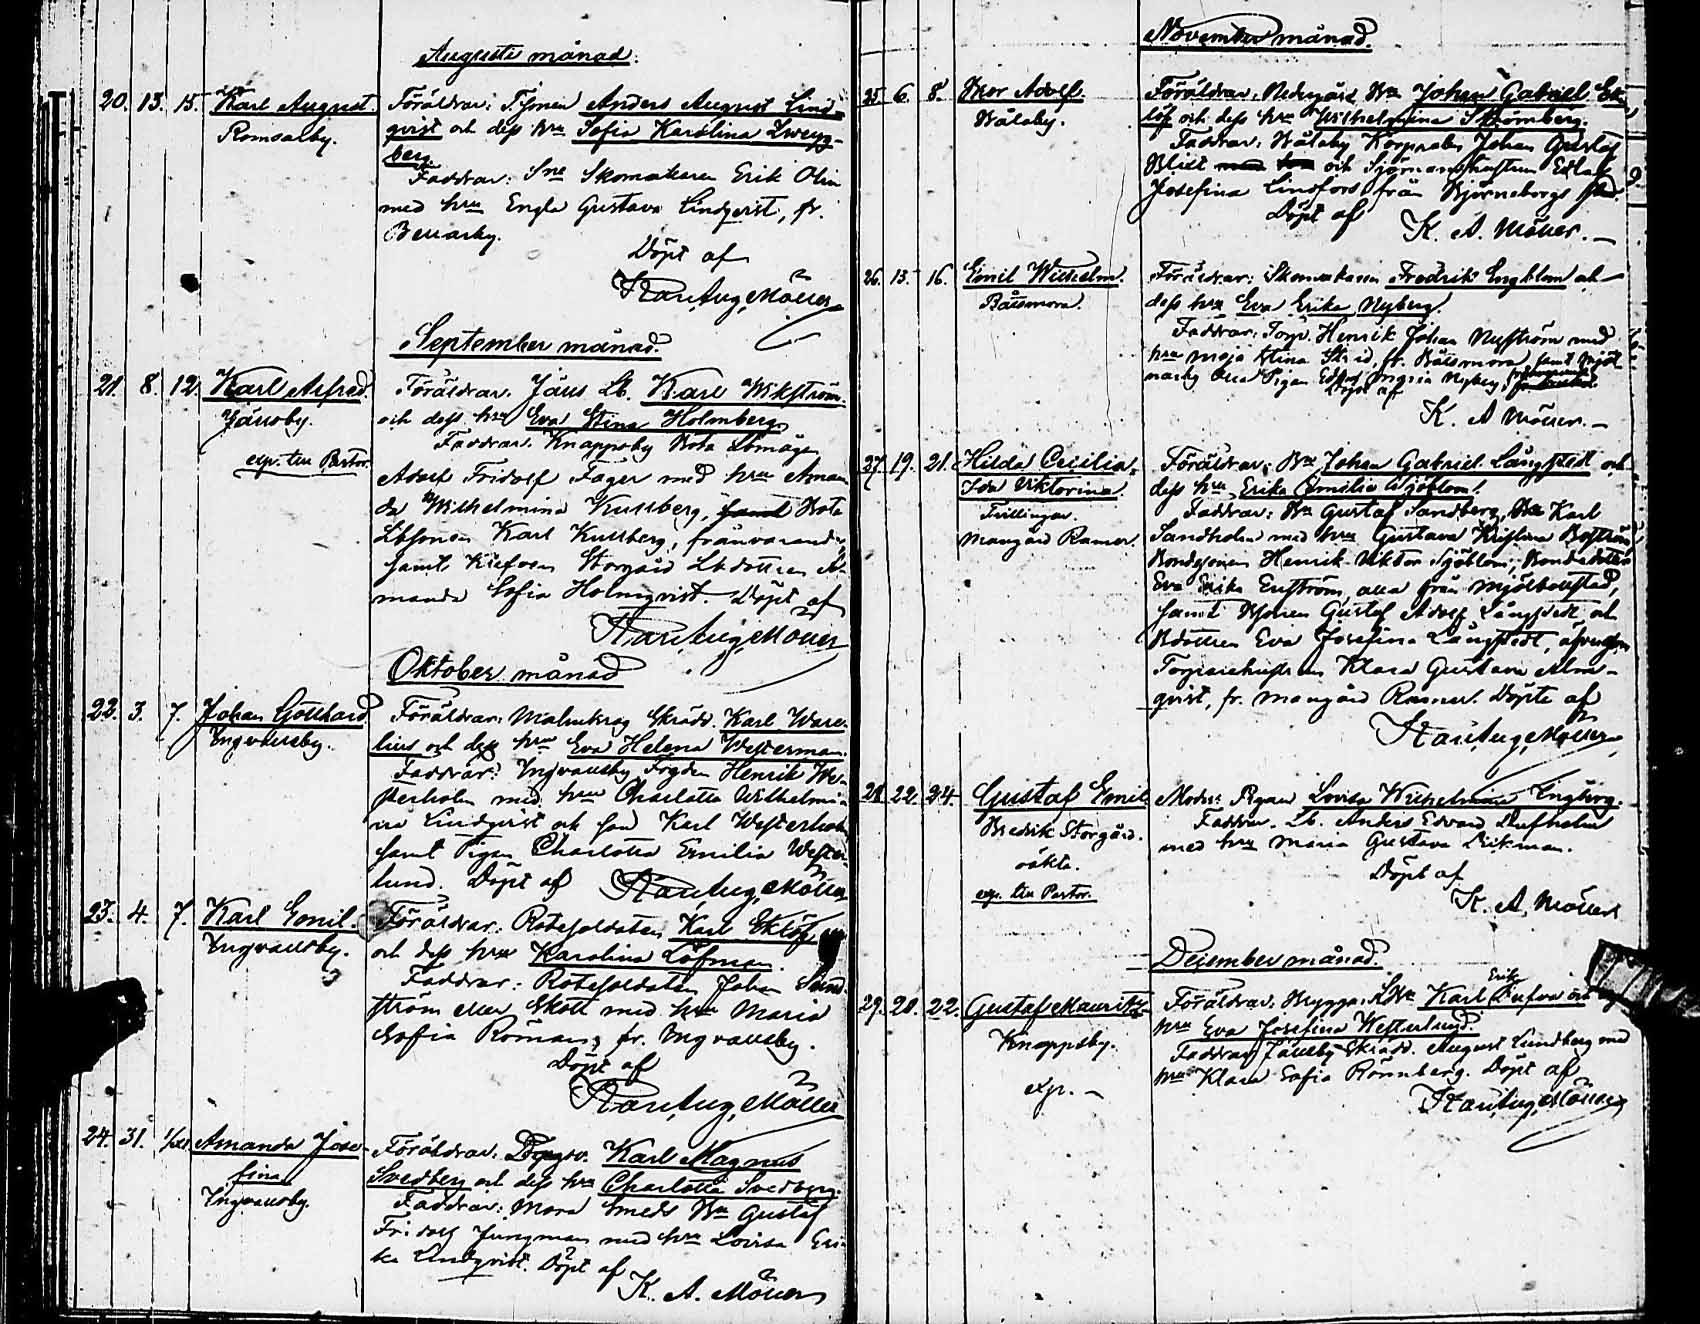 Augusti månad.
20. 13. 15. Karl August.
Romsarby.
Föräldrar: Anders August Lind-
qvist och dess hru Sofia Karolina Zweyg-
berg
Faddrar: Skomakaren Erik Olin
med hru Engla Gustava Lindqvist, fr.
Benarby.
Döpt af
Karl Aug. Möller
September månad.
21. 8. 12. Karl Alfred.
Jänsby.
exp. till Pastor.
Föräldrar: Jäns Lb. Karl Wikström
och dess hru Eva Stina Holmberg.
Faddrar: Knappsby Bota Lbmåge
Adolf Fridolf Fager med hru Aman-
da Wilhelmina Kullberg, Bota
Lbsonen Karl Kullberg, frånvarande,
samt Storgård Lbdottren A-
manda Sofia Holmqvist. Döpt af
Karl Aug. Möller
Oktober månad
22. 3. 7. Johan Gotthard
Ingvallsby.
Föräldrar: Malmkrog Skrädd. Karl Ware-
lius och dess hru Eva Helena Westerman.
Faddrar: Ingvallsby Fogden Henrik We-
sterholm med hru Charlotta Wilhelmi-
na Lindqvist och Karl Westerholm
samt Pigan Charlotta Emilia Wester-
lund. Döpt af Karl Aug. Möller
23. 4. 7. Karl Emil.
Ingvallsby.
Föräldrar: Rotesoldaten Karl Eklöf
och dess hru Karolina Löfman.
Faddrar: Rotesoldaten Johan Sand-
ström eller Skott med hru Maria
Sofia Röman, fr. Ingvallsby.
Döpt af
Karl Aug. Möller
24. 31. Amanda Jose-
fina
Ingvallsby.
Föräldrar: Karl Magnus
Svedberg och dess hru Charlotta Svedberg.
Faddrar: Mora Smeds Bn Gustaf
Fridolf Jungman med hru Lovisa Eri-
ka Lindqvist. Döpt af
K. A. Möller
November månad.
25 6. 8. Ivar Adolf.
Wålaby.
Föräldrar: Nedergård Bn Johan Gabriel Ek-
löf och dess hru Wilhelmina Strömberg.
Faddrar: Wålaby Korpralen Johan Gustaf
Blixt och Sjömanshustrun Edla
Josefina Lindfors från Björneborgs stad.
Döpt af
K. A. Möller.
26. 13. 16. Emil Wilhelm.
Båssmora.
Föräldrar: Skomakaren Fredrik Engblom och
dess hru Eva Erika Nyberg.
Faddrar: Torp. Henrik Johan Nyström med
hru Maja Stina Strid, fr. Båssmora, samt
Pigan Maria Nyberg
Döpt af
K. A. Möller.
27. 19. 21. Hilda Cecilia,
Ida Viktorina.
Tvillingar.
Mangård Ramer.
Föräldrar: Bn Johan Gabriel Långstedt och
dess hru Erika Emilia Sjöblom.
Faddrar: Bn Gustaf Sandberg, Bn Karl
Sandholm med hru Gustava Kristina Boström,
Bondesonen Henrik Viktor Sjöblom, Bondedottren
Eva Erika Enström, alla från Mjölbollstad,
samt Bsonen Gustaf Adolf Långstedt och
Bdottren Eva Josefina Långstedt,
Torparehustrun Klara Gustava Alm-
qvist, fr. Mangård Ramer. Döpte af
Karl Aug. Möller
28 22. 24. Gustaf Emil
Bredvik Storgård.
oäkta.
exp. till Pastor.
Moder: Pigan Lovisa Wilhelmina Engberg.
Faddrar: Lb. Anders Edvard Dufholm
med hru Maria Gustava Vikman.
Döpt af
K. A. Möller
December månad.
29. 20. 22. Gustaf Mauritz
Knappsby.
exp.
Föräldrar: Brygga, LBn Karl Erik Dufva och dess
hru Eva Josefina Westerlund.
Faddrar: Jänsby Skrädd. August Lundberg med
hru Klara Sofia Rönnberg. Döpt af
Karl Aug. Möller